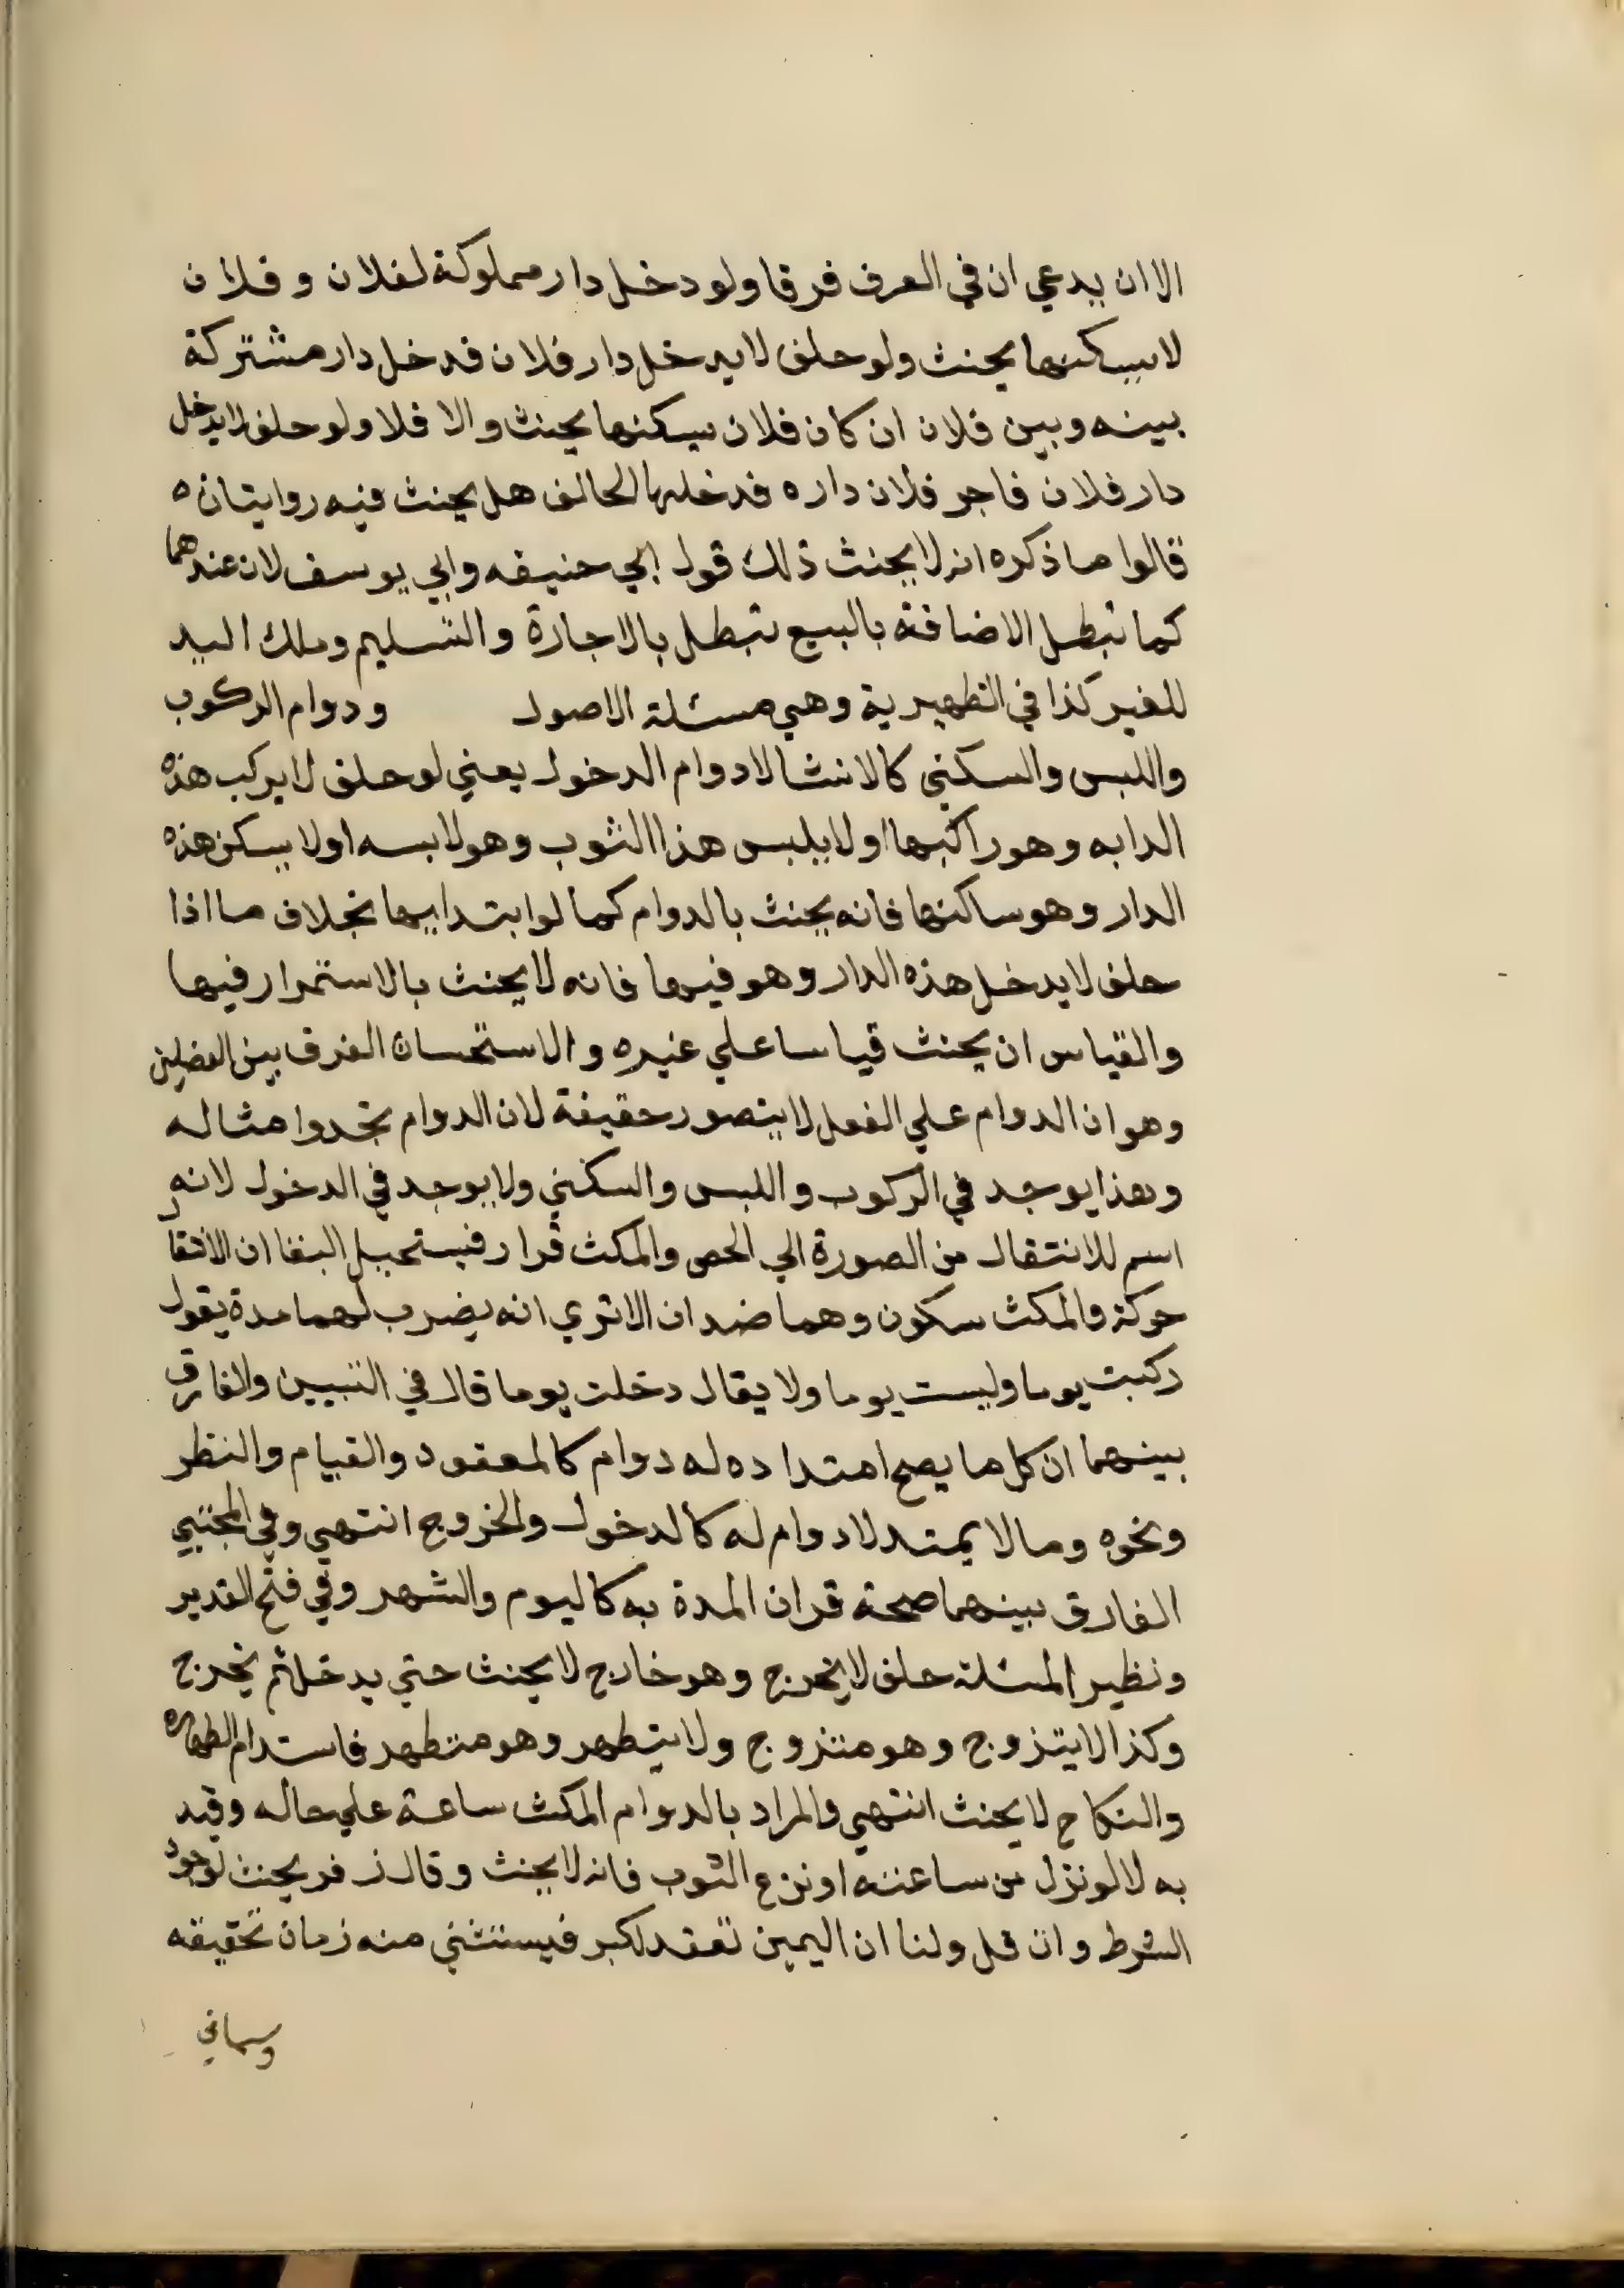 الا ان يدعي ان في العرف فرقا ولو دخل دار مملوكة لفلان وفلان
لا يسكنها يحنث ولو حلف لا يدخل دار فلان فدخل دار مشتركة
بينه وبين فلان ان كان فلان يسكنها يحنث والا فلا ولو حلف لا يدخل
دار فلان فاجر فلان داره فدخلها الحالف هل يحنث فيه روايتان ه
قالوا ما ذكره انه لا يحنث ذلك قول ابي حنيفه وابي يوسف لان عندهما
كما تبطل الاضافة بالبيع تبطل بالاجارة والتسليم وملك اليد
للغير كذا في الظهيرية وهي مسئلة الاصول ودوام الركوب
واللبس والسكني كالانشا لا دوام الدخول يعني لو حلف لا يركب هذه
الدابه وهو راكبها او لا يلبس هذا الثوب وهو لابسه او لا يسكن هذه
الدار وهو ساكنها فانه يحنث بالدوام كما لو ابتدايها بخلاف ما اذا
حلف لا يدخل هذه الدار وهو فيها فانه لا يحنث بالاستمرار فيها
والقياس ان يحنث قياسا علي غيره والاستحسان الفرق بين الفصلين
وهو ان الدوام علي الفعل لا يتصور حقيقة لان الدوام تجدد امثاله
وهذا يوجد في الركوب واللبس والسكني ولا يوجد في الدخول لانه
اسم للانتقال من الصورة الي الحص والمكث قرار فيستحيل البقا ان الانتقال
حركة والمكث سكون وهما ضدان الا تري انه يضرب لهما مدة يقول
ركبت يوما ولبست يوما ولا يقال دخلت يوما قال في التبيين والفارق
بينهما ان كل ما يصح امتداده له دوام كالمعقود والقيام والنظر
ونحوه وما لا يمتد لا دوام له كالدخول والخروج انتهي وفي المجتبي
الفارق بينهما صحة قران المدة به كاليوم والشهر وفي فتح القدير
ونظير المسئلة حلف لا يخرج وهو خارج لا يحنث حتي يدخل ثم يخرج
وكذا لا يتزوج وهو متزوج ولا يتطهر وهو متطهر فاستدام الطهاره
والنكاح لا يحنث انتهي والمراد بالدوام المكث ساعة علي حاله وقيد
به لا لو نزل من ساعته او نزع الثوب فانه لا يحنث وقال زفر يحنث لوجود
الشرط وان قل ولنا ان اليمين تعقد لكبر فيستثني منه زمان تحقيقه